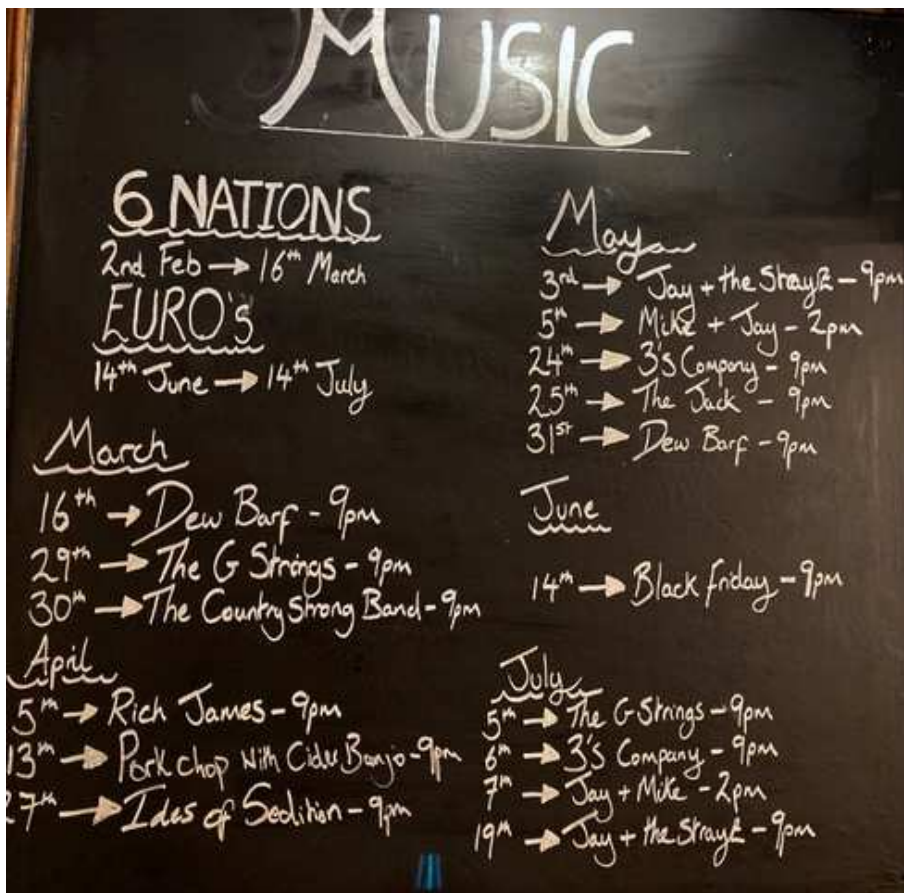 MUSIC
6 NATIONS
2nd Feb → 16th March
EURO's
14th June → 14th July
March
16th → Dew Barf - 9pm
29th → The G Strings - 9pm
30th → The Country Strong Band - 9pm
April
5th → Rich James - 9pm
13th → Pork chop with Cider Banjo - 9pm
27th → Ides of Sedition - 9pm
May
3rd → Jay + the StrayZ - 9pm
5th → Mike + Jay - 2pm
24th → 3's Company - 9pm
25th → The Jack - 9pm
31st → Dew Barf - 9pm
June
14th → Black Friday - 9pm
July
5th → The G Strings - 9pm
6th → 3's Company - 9pm
7th → Jay + Mike - 2pm
19th → Jay + the StrayZ - 9pm